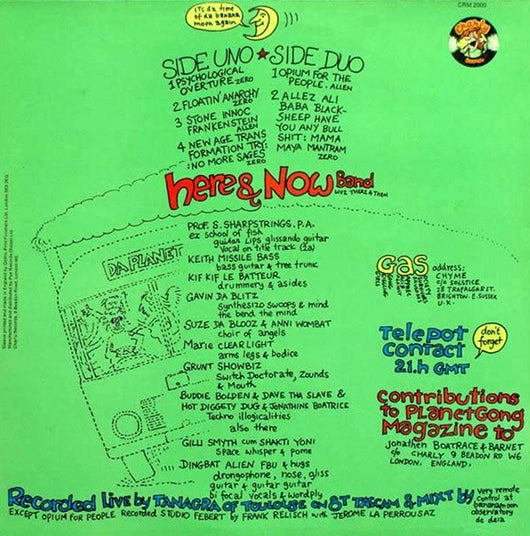 its da time
of da banana
moon again
CRM 2000
Charly
Records
SIDE UNO ★ SIDE DUO
1 PSYCHOLOGICAL
OVERTURE ZERO
2 FLOATIN' ANARCHY
ZERO
3 STONE INNOC
FRANKENSTEIN
ALLEN
4 NEW AGE TRANS
FORMATION TRY:
:NO MORE SAGES
ZERO
1 OPIUM FOR THE
PEOPLE. ALLEN
2 ALLEZ ALI
BABA BLACK-
SHEEP HAVE
YOU ANY BULL
SHIT: MAMA
MAYA MANTRAM
ZERO
here & NOW Band
wiz THERE & THEN
DA PLANET
PROF. S. SHARPSTRINGS. P.A.
ex school of fish
guidan lips glissando guitar
Vocal on title track (2a)
KEITH MISSILE BASS
bass guitar & tree trunk
KIF KIF LE BATTEUR
drummery & asides
GAVIN DA BLITZ
synthesizo swoops & mind
the bend the mind
SUZE DA BLOOZ & ANNI WOMBAT
choir of angels
Marie CLEARLIGHT
arms legs & bodice
GRUNT SHOWBIZ
Switch Doctorate, Zounds
& Mouth
BUDDIE BOLDEN & DAVE THA SLAVE &
HOT DIGGETY DUG & JONATHINE BOATRICE
Techno illogicalities
also there
GILLI SMYTH cum SHAKTI YONI
Space whisper & pome
DINGBAT ALIEN FBU & hugs
drongophone, nose, gliss
guitar & guitar guitar
bi focal vocals & wordply
Gas address:
CHYME
c/o SOLSTICE
28 TRAFALGAR ST.
BRIGHTON. E. SUSSEX
U.K.
Telepot
contact
21.h GMT
don't
forget
contributions
to PLANETGONG
Magazine to
Jonathen BOATRACE & BARNET
c/o CHARLY 9 BEADON RD W6
LONDON. ENGLAND.
Recorded Live by TANAGRA OF TOULOUSE on 8T TASCAM & MIXT by
very remote
control at
bananamoon
observatory
de deia
EXCEPT OPIUM FOR PEOPLE Recorded STUDIO FEBERT by FRANK RELISCH with JEROME LA PERROUSAZ